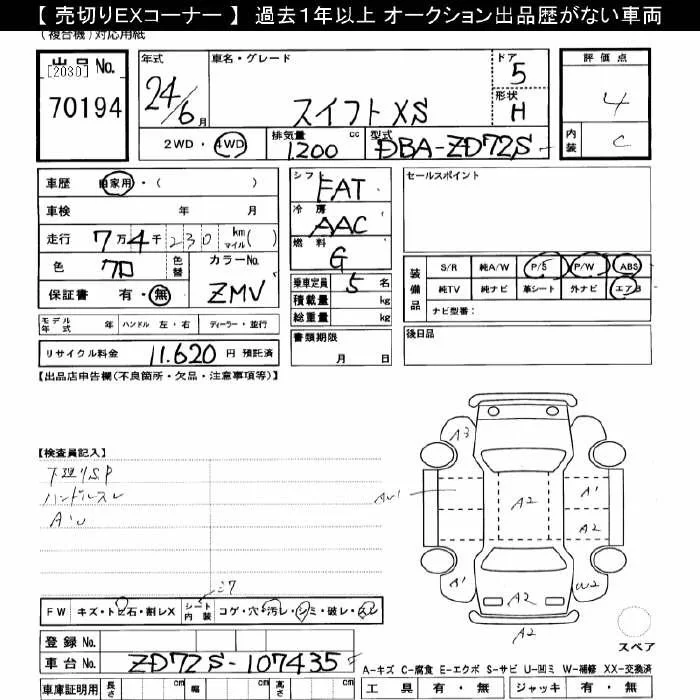 【 売切りEXコーナー 】 過去１年以上 オークション出品歴がない車両
(複合機)対応用紙
出品 No.
[2030]
70194
年式
24/6月
車名・グレード
スイフト XS
ドア
5
形状
H
評価点
4
内装
C
2WD・4WD
排気量 cc
1200
型式
DBA-ZD72S
車歴 自家用・( )
車検 年 月
走行 7万4千230 km マイル( )
色
色替
カラーNo.
ZMV
保証書 有・無
シフト
FAT
冷房
AAC
燃料
G
乗車定員 5 名
積載量 kg
総重量 kg
書類期限
月 日
セールスポイント
装備品
S/R 純A/W P/S P/W ABS
純TV 純ナビ 革シート 外ナビ エアB
ナビ型番:
後日品
モデル年式 年 ハンドル 左・右 ディーラー・並行
リサイクル料金 11.620 円 預託済
【出品店申告欄(不良箇所・欠品・注意事項等)】
【検査員記入】
下廻りS.P
ハンドルスレ
A3
A2
A1
A2
A1
W2
A2
A2
FW キズ・トビ石・割レX
シート内装 コゲ・穴・汚レ・シミ・破レ・スレ
登録 No.
車台 No.
ZD72S-107435
スペア
A-キズ C-腐食 E-エクボ S-サビ U-凹ミ W-補修 XX-交換済
車庫証明用 長さ cm 幅 cm 高さ cm
工具 有・無 ジャッキ 有・無